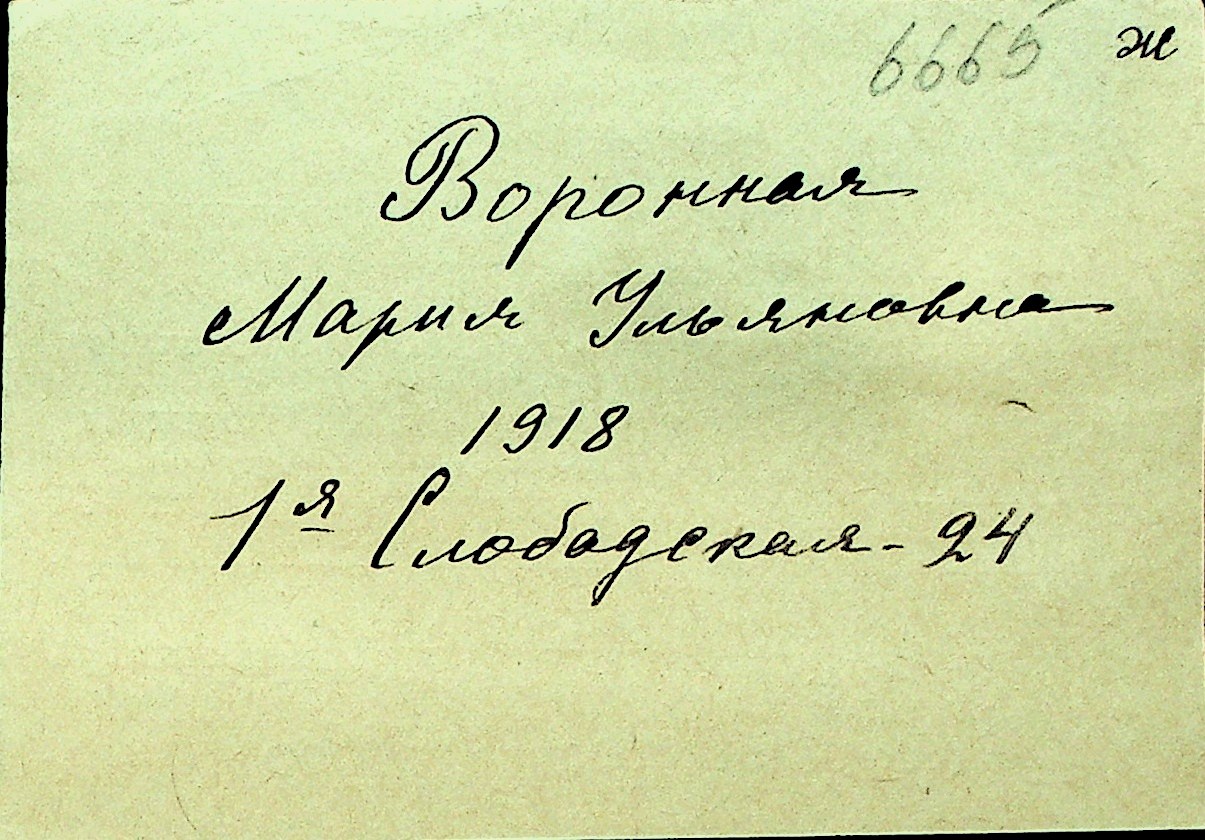 6665 ж
Воронная
Мария Ульяновна
1918
1я Слободская - 24